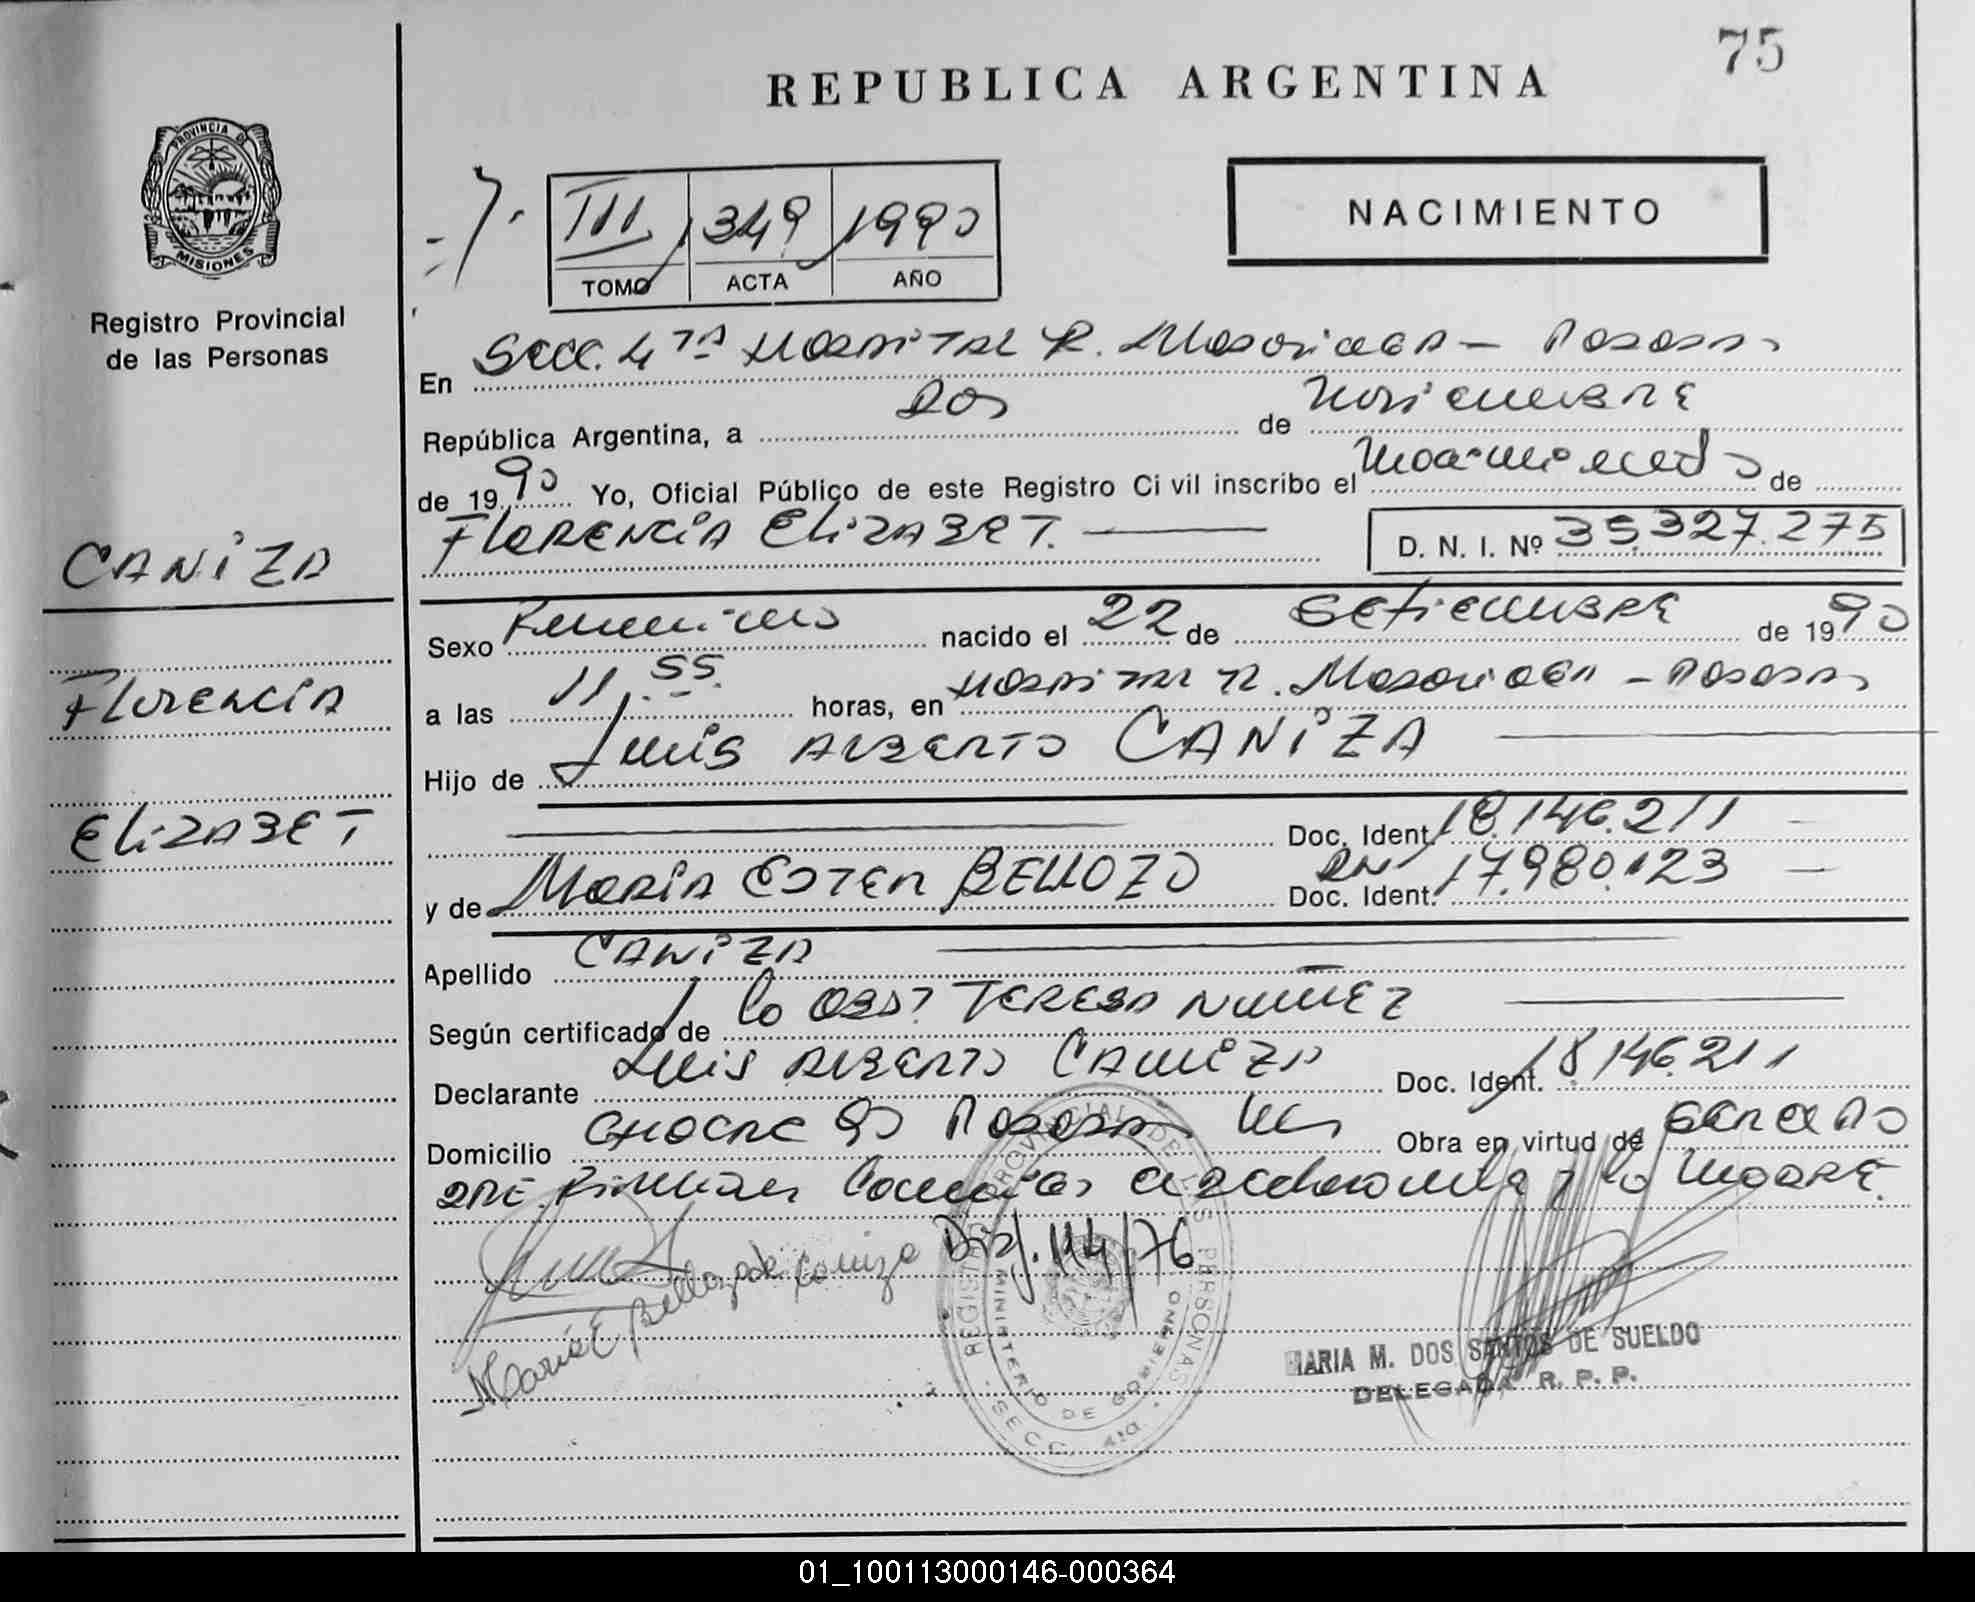 75
REPUBLICA ARGENTINA
PROVINCIA DE
MISIONES
Registro Provincial
de las Personas
III 349 1990
TOMO ACTA AÑO
NACIMIENTO
En Secc. 4TA Hospital R. Madariaga - Posadas
República Argentina, a Dos de Noviembre
de 1990 Yo, Oficial Público de este Registro Civil inscribo el Nacimiento de
Florencia Elizabet. D. N. I. Nº 35.327.275
CANiZA
Sexo Femenino nacido el 22 de Setiembre de 1990
Florencia
a las 11,55 horas, en Hospital R. Madariaga - Posadas
Hijo de Luis Alberto CANiZA
Elizabet
Doc. Ident. 18.146.211
y de María Ester BELLOZO DNI Doc. Ident. 17.980.123
Apellido CANiZA
Según certificado de la Obst. Teresa Nuñez
Declarante Luis Alberto Caniza Doc. Ident. 18.146.211
Domicilio 90 Posadas Obra en virtud de ser el PA
DRE. Firman y la MADRE.
Disp. 114/76
María E Bellozo de Caniza
REGISTRO PROVINCIAL DE LAS PERSONAS
MINISTERIO DE GOBIERNO
SECC. 4ta.
MARIA M. DOS SANTOS DE SUELDO
DELEGADA R. P. P.
01_100113000146-000364